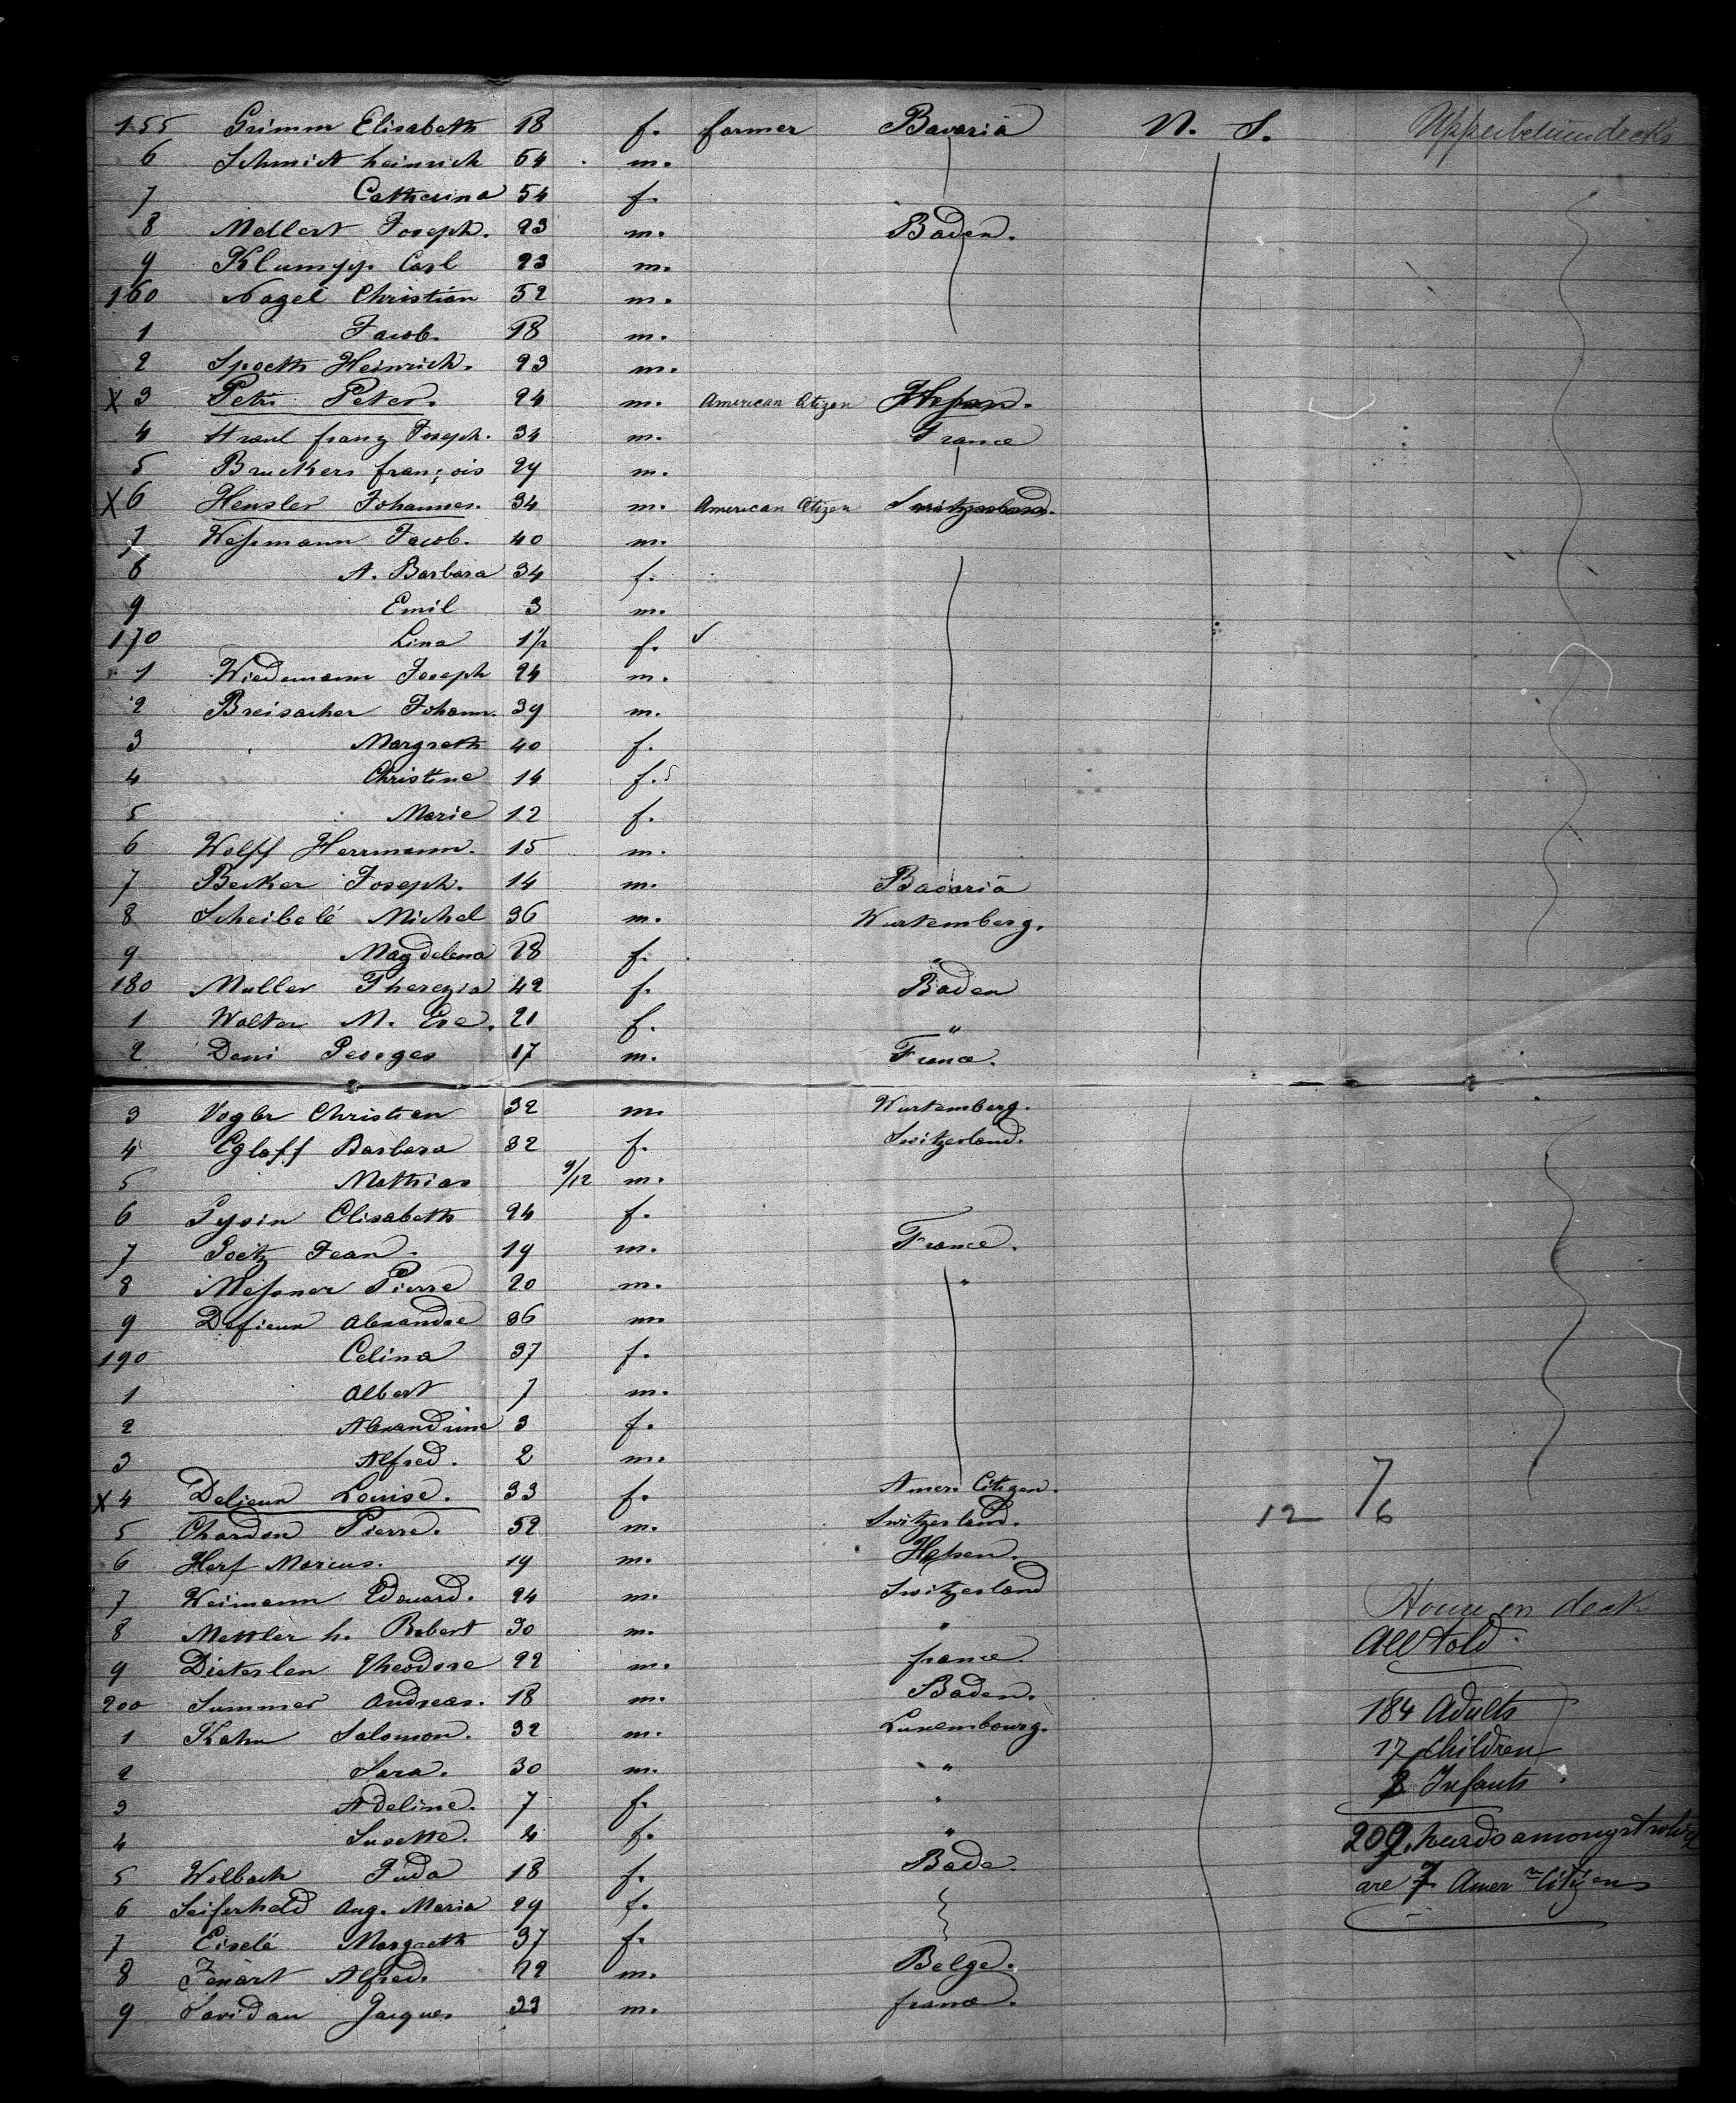 155 Grimm Elisabeth 18 f. farmer Bavaria N. S. Upperbetweendecks
6 Schmidt heinrich 54 m.
7 Catherina 54 f.
8 Mellert Joseph. 23 m. Baden.
9 Klumpp Carl 23 m.
160 Nagel Christian 52 m.
1 Jacob. 18 m.
2 Spoeth Heinrich. 23 m.
X 3 Petri Peter. 24 m. American Citizen Heßen.
4 franz Joseph. 34 m. France
5 Bruckers françois 29 m.
X 6 Hensler Johannes. 34 m. American Citizen Switzerland.
7 Weßmann Jacob. 40 m.
8 A. Barbara 34 f.
9 Emil 3 m.
170 Lina 1½ f. ✓
1 Wiedemann Joseph 24 m.
2 Breisacher Johann. 39 m.
3 Margreth 40 f.
4 Christine 14 f.
5 Marie 12 f.
6 Wolff Herrmann. 15 m.
7 Becker Joseph. 14 m. Bavaria
8 Scheibelé Michel 36 m. Wurtemberg.
9 Magdelena 28 f. "
180 Muller Therezia 42 f. Baden
1 Walter M. Eve. 21 f. "
2 Deni Georges 17 m. France.
3 Vogler Christian 32 m. Wurtemberg.
4 Egloff Barbara 32 f. Switzerland.
5 Mathias 9/12 m.
6 Gysin Elisabeth 24 f.
7 Goetz Jean. 19 m. France.
8 Meßner Pierre 20 m. "
9 Dejeux Alexandre 36 m
190 Celina 37 f.
1 Albert 7 m.
2 Alexandrine 3 f.
3 Alfred. 2 m.
X 4 Dejeux Louise. 33 f. Amer. Citizen.
5 Chardon Pierre. 52 m. Switzerland. 12 7/6
6 Herf Marcus. 19 m. Heßen.
7 Weimann Edouard. 24 m. Switzerland
8 Mettler h. Robert 30 m. " House on deck
9 Dieterlen Theodore 22 m. france All told.
200 Summer Andreas. 18 m. Baden. 184 Adults
1 Kahn Salomon. 32 m. Luxembourg. 17 Children
2 Sara. 30 m. " 8 Infants
3 Adeline. 7 f. "
4 Susette. 4 f. " 209 heads amongst which
5 Wolbach Juda 18 f. Bade. are 7 Amern Citizens
6 Seiferheld Aug. Maria 29 f.
7 Eiselé Margreth 37 f.
8 Jenart Alfred. 22 m. Belge.
9 Savidan Jacques 33 m. france.